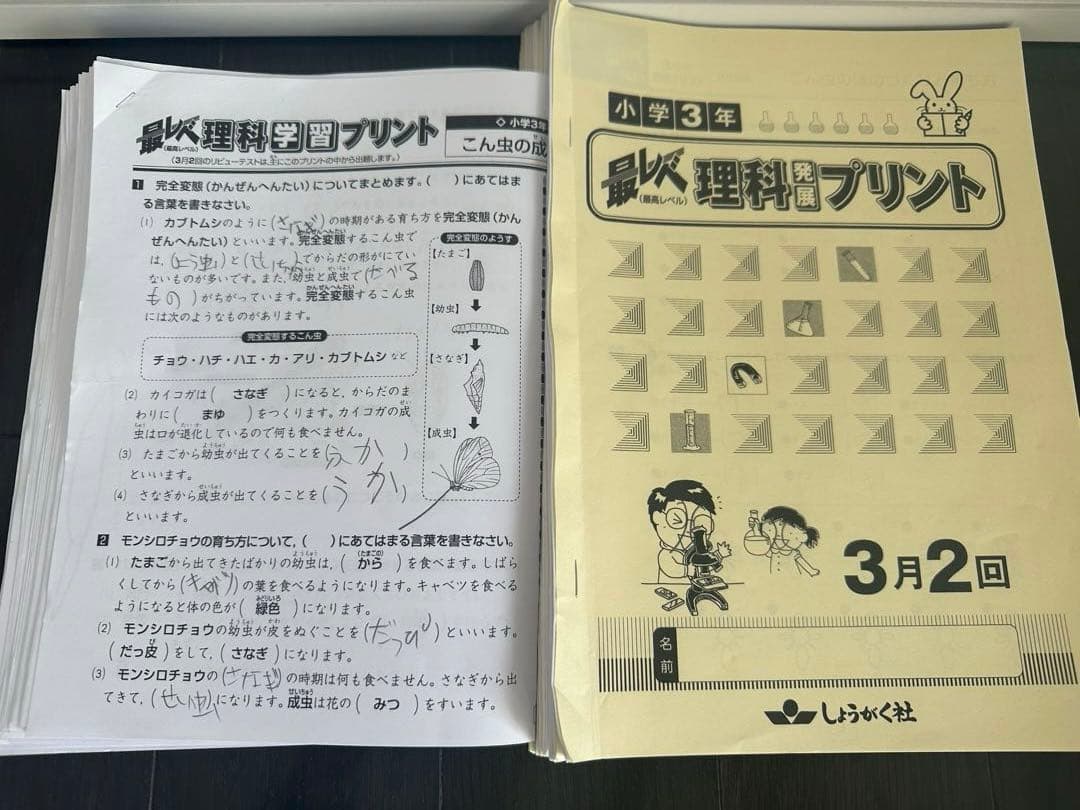 最レベ 理科学習プリント
(最高レベル)
(3月2回のリビューテストは、主にこのプリントの中から出題します。)
◇小学3年
こん虫の成
1 完全変態(かんぜんへんたい)についてまとめます。( )にあてはま
る言葉を書きなさい。
(1) カブトムシのように(さなぎ)の時期がある育ち方を完全変態(かん
ぜんへんたい)といいます。完全変態するこん虫で
は、(よう虫)と(せい虫)でからだの形がにてい
ないものが多いです。また、幼虫と成虫で(たべる
もの)がちがっています。完全変態するこん虫
には次のようなものがあります。
完全変態するこん虫
チョウ・ハチ・ハエ・カ・アリ・カブトムシ など
(2) カイコガは( さなぎ )になると、からだのま
わりに( まゆ )をつくります。カイコガの成
虫は口が退化しているので何も食べません。
(3) たまごから幼虫が出てくることを(ふか)
といいます。
(4) さなぎから成虫が出てくることを(うか)
といいます。
完全変態のようす
【たまご】
【幼虫】
【さなぎ】
【成虫】
2 モンシロチョウの育ち方について、( )にあてはまる言葉を書きなさい。
(1) たまごから出てきたばかりの幼虫は、( (たまごの)から )を食べます。しばら
くしてから(キャベツ)の葉を食べるようになります。キャベツを食べる
ようになると体の色が( 緑色 )になります。
(2) モンシロチョウの幼虫が皮をぬぐことを(だっぴ)といいます。
(だっ皮)をして、(さなぎ)になります。
(3) モンシロチョウの(さなぎ)の時期は何も食べません。さなぎから出
てきて、(せい虫)になります。成虫は花の( みつ )をすいます。
小学3年
最レベ 理科発展プリント
(最高レベル)
3月2回
名前
しょうがく社